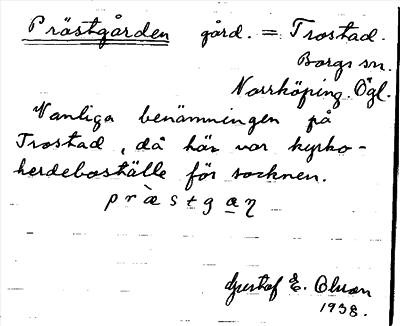 Prästgården gård. = Trostad.
Borgs sn.
Norrköping. Ögl.
Vanliga benämningen på
Trostad, då här var kyrko-
herdeboställe för socknen.
p r æ̀ s t g æ̱ ŋ
Gustaf E. Olsson
1938.